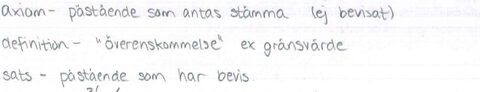 axiom - påstående som antas stämma (ej bevisat)
definition - "överenskommelse" ex gränsvärde
sats - påstående som har bevis.